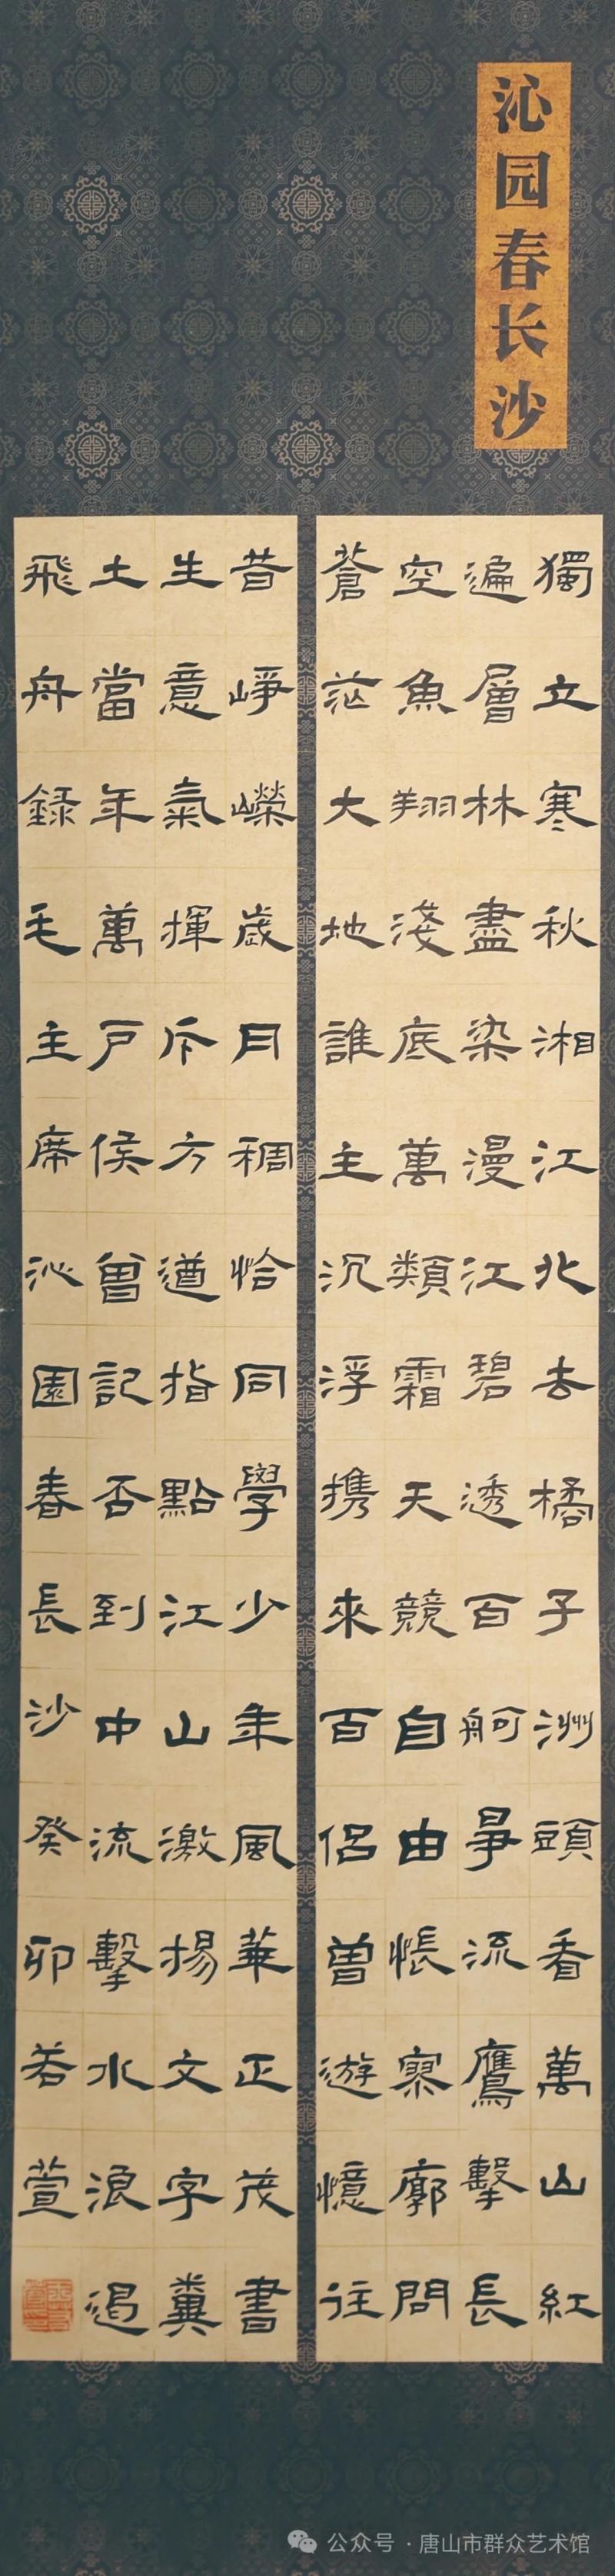 沁园春长沙
獨立寒秋湘江北去橘子洲頭看萬山紅
遍層林盡染漫江碧透百舸爭流鷹擊長
空魚翔淺底萬類霜天競自由悵寥廓問
蒼茫大地誰主沉浮携來百侶曾遊憶往
昔崢嶸歲月稠恰同學少年風華正茂書
生意氣揮斥方遒指點江山激揚文字糞
土當年萬戶侯曾記否到中流擊水浪遏
飛舟録毛主席沁園春長沙癸卯若萱
公众号·唐山市群众艺术馆